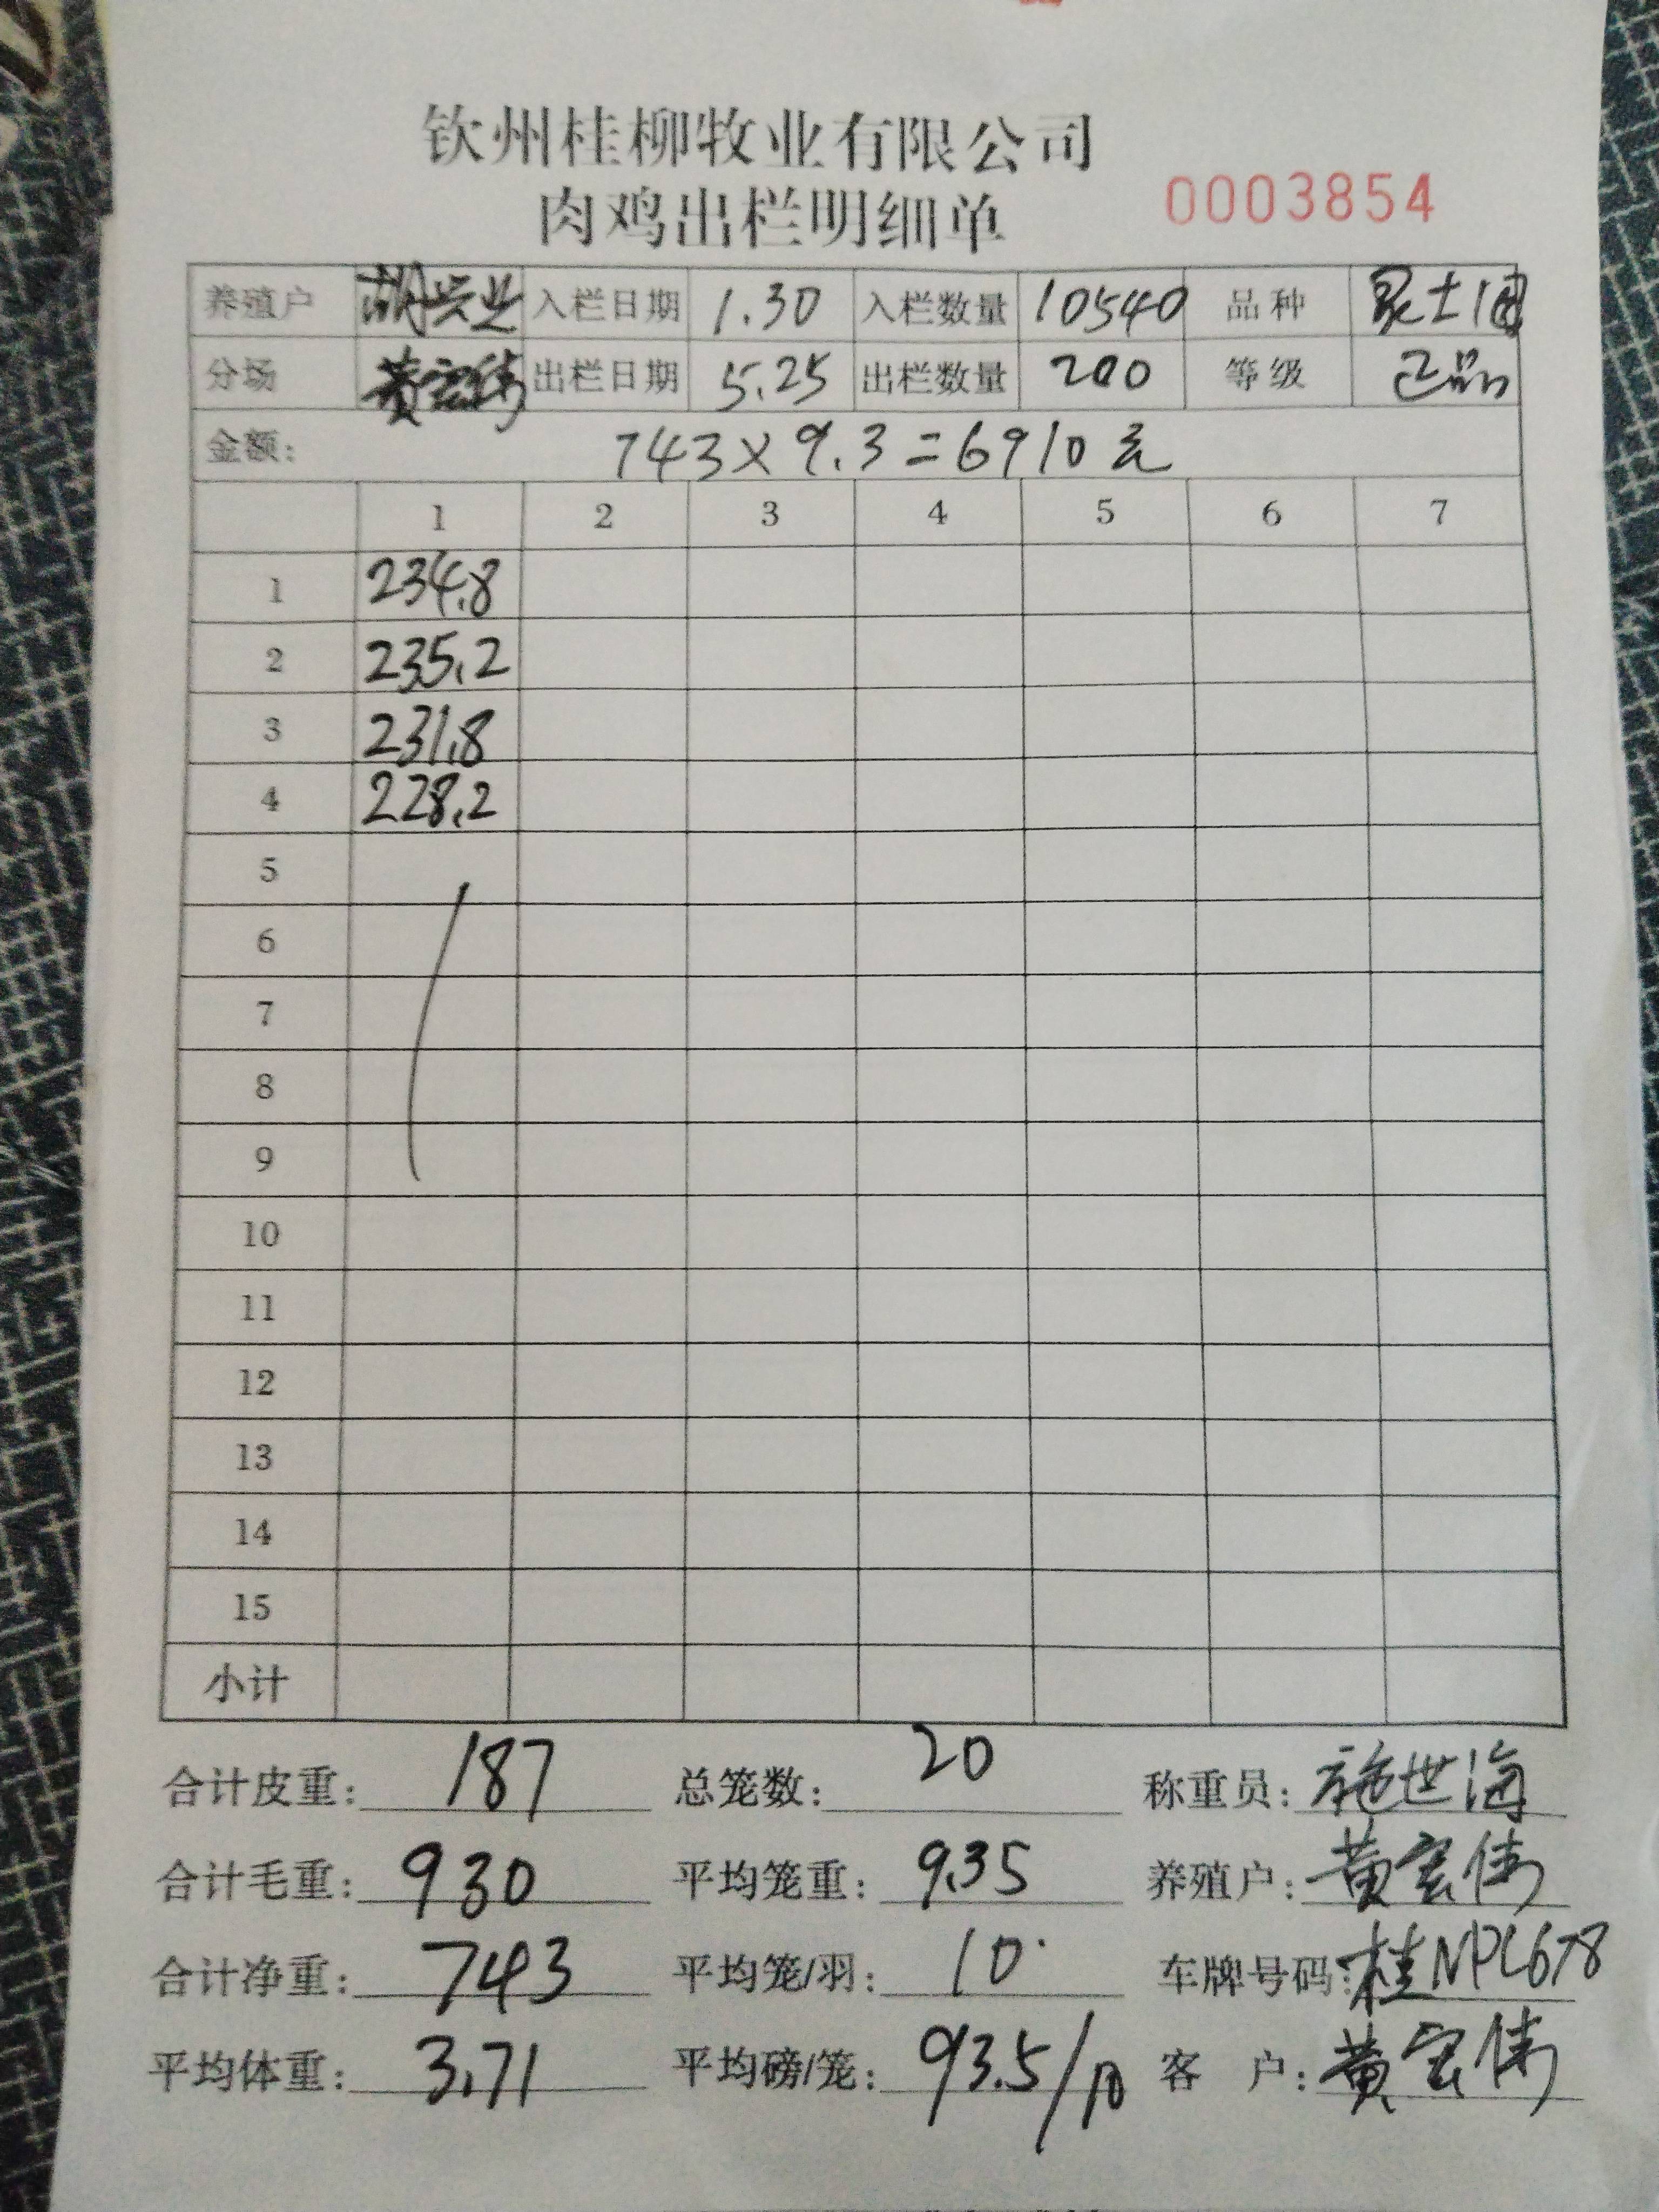 钦州桂柳牧业有限公司
肉鸡出栏明细单 0003854
养殖户 胡兴业 入栏日期 1.30 入栏数量 10540 品种
分场 黄宏伟 出栏日期 5.25 出栏数量 200 等级 正品
金额: 743×9.3=6910元
1 2 3 4 5 6 7
1 234.8
2 235.2
3 231.8
4 228.2
5
6
7
8
9
10
11
12
13
14
15
小计
合计皮重: 187 总笼数: 20 称重员: 施世海
合计毛重: 930 平均笼重: 9.35 养殖户: 黄宏伟
合计净重: 743 平均笼/羽: 10 车牌号码: 桂NPL678
平均体重: 3.71 平均磅/笼: 93.5/10 客 户: 黄宏伟